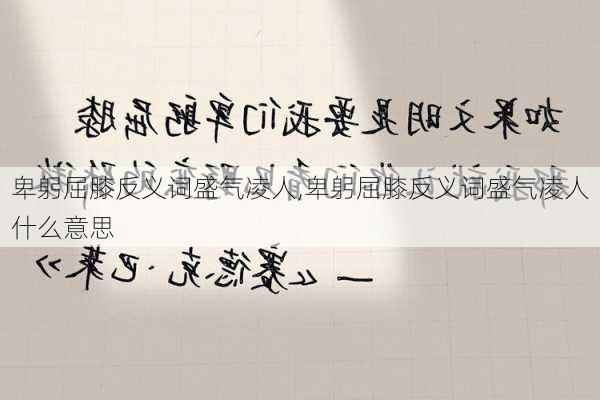 如果文明是要我们卑躬屈膝
卑躬屈膝反义词盛气凌人,卑躬屈膝反义词盛气凌人
什么意思
—《赛德克·巴莱》